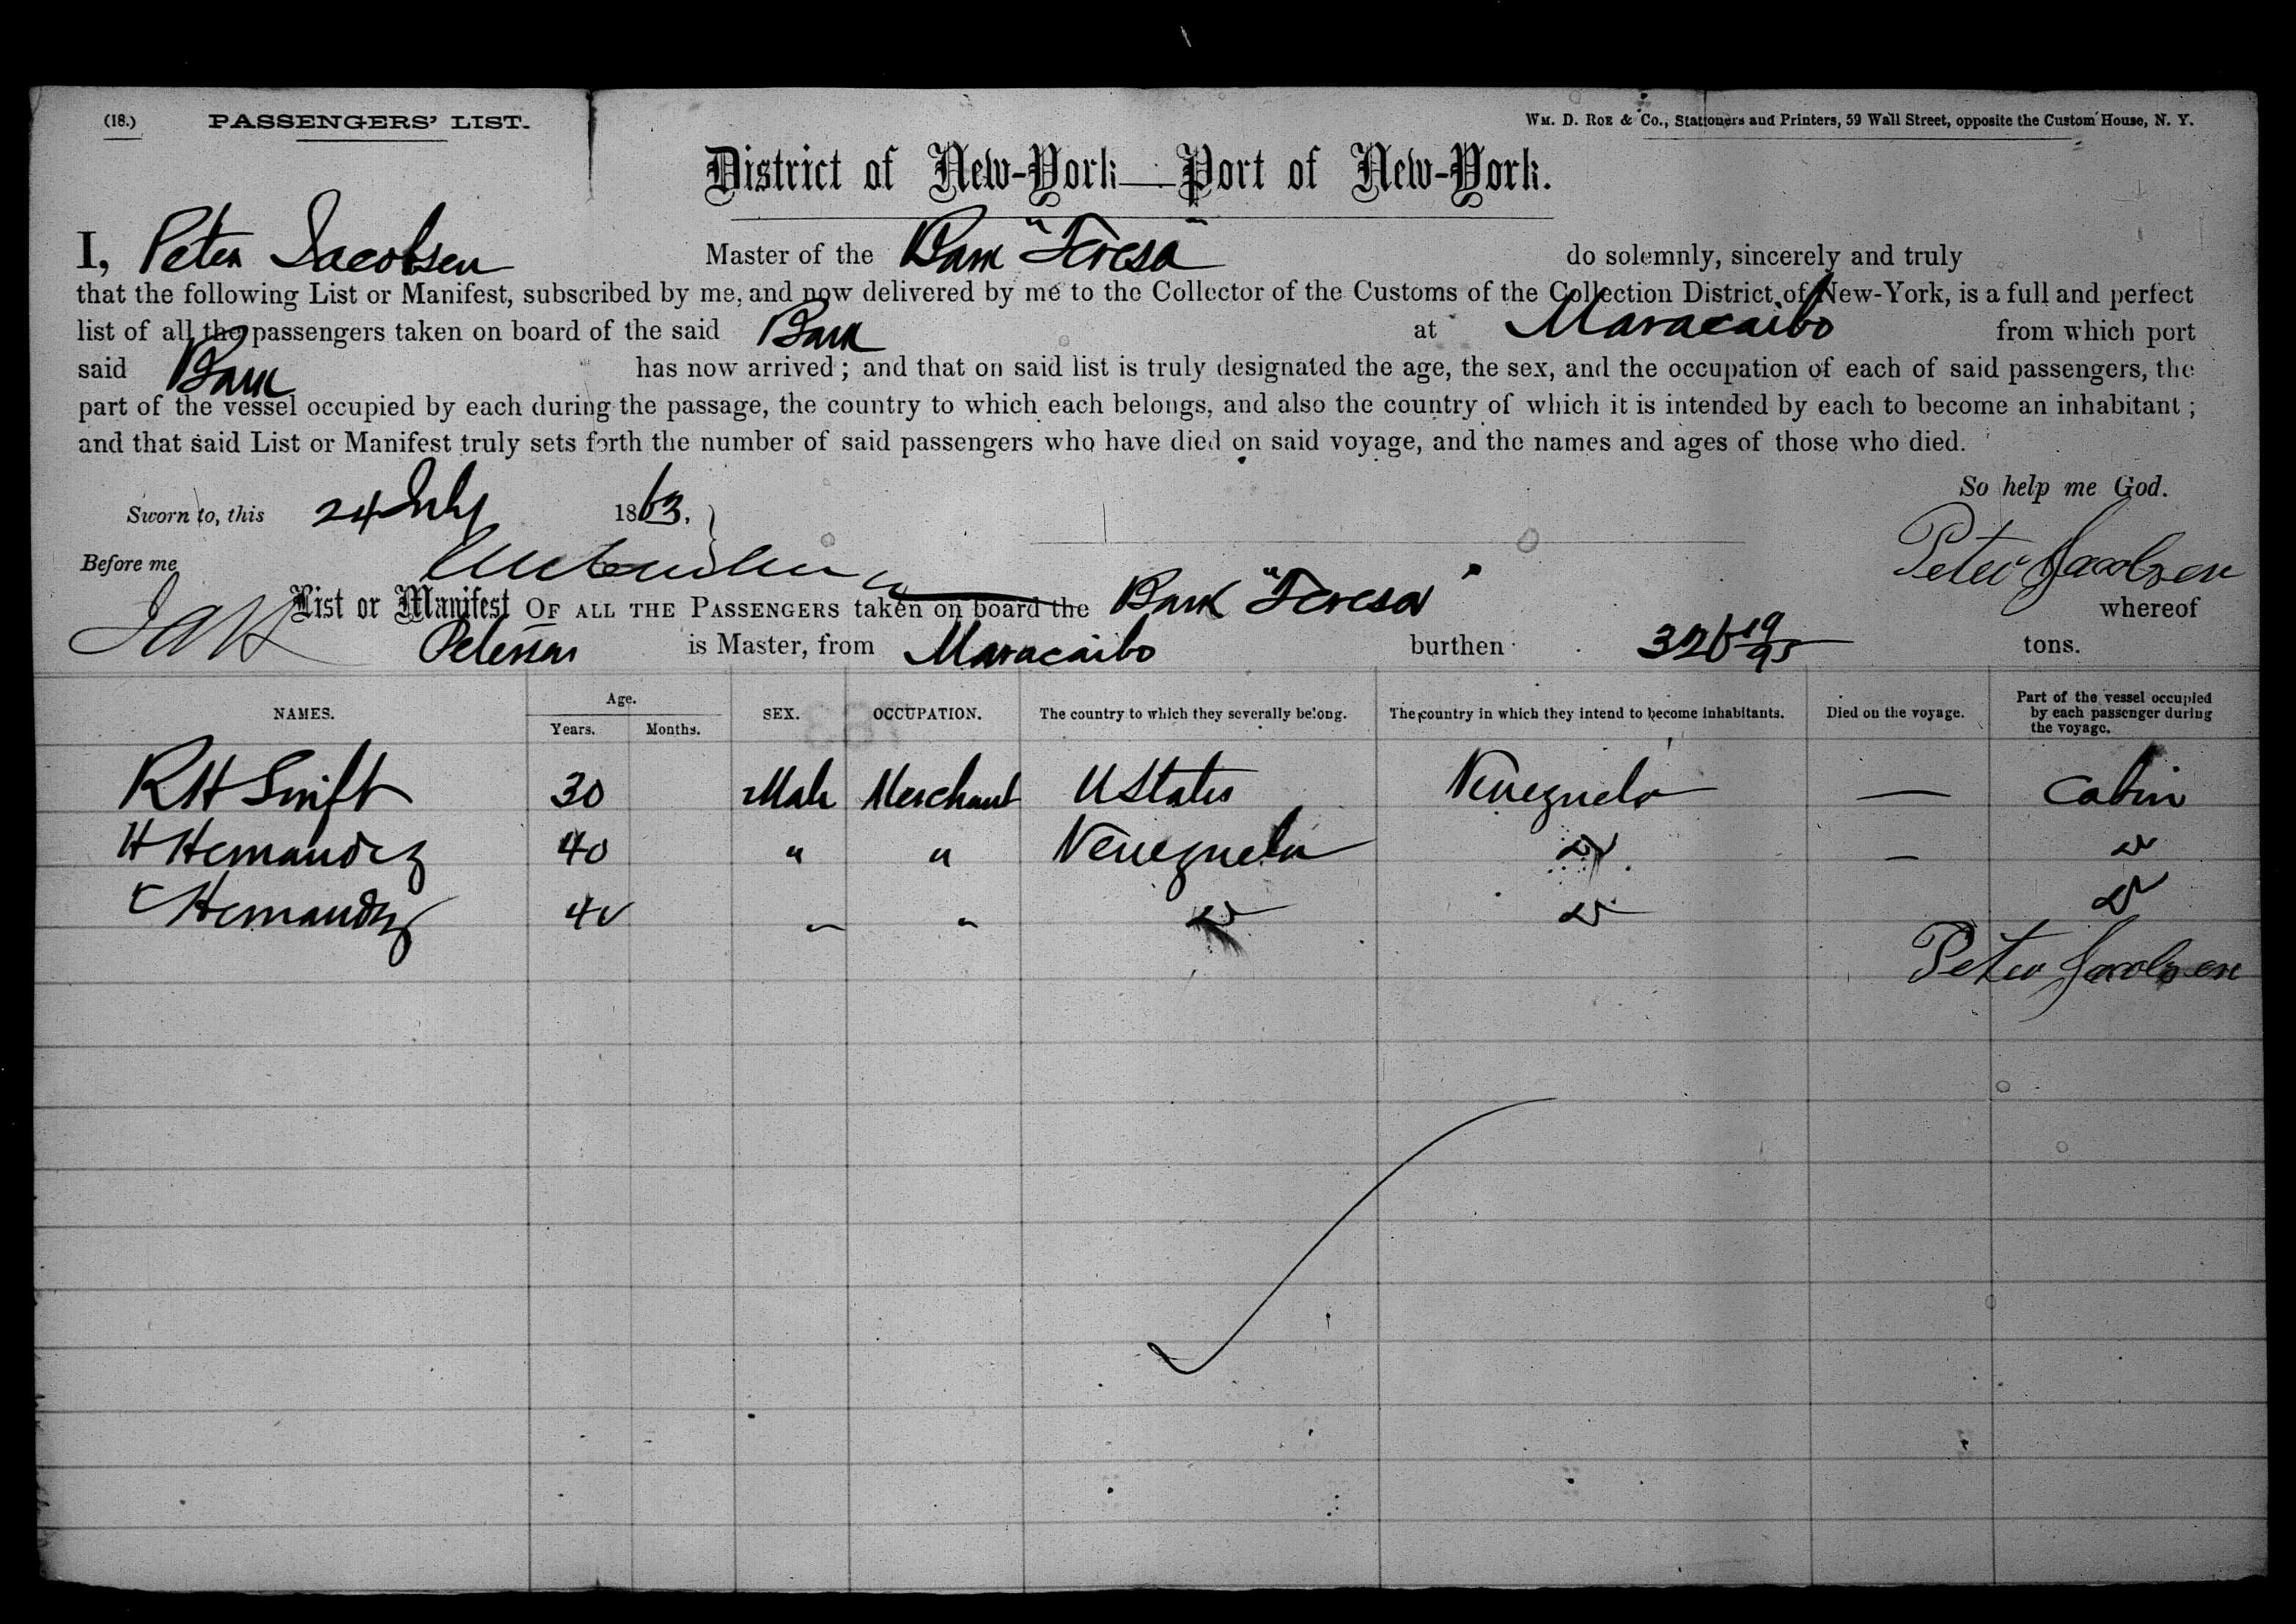 (18.) PASSENGERS' LIST. Wm. D. Roe & Co., Stationers and Printers, 59 Wall Street, opposite the Custom House, N. Y.
District of New-York—Port of New-York.
I, Peter Jacobsen Master of the Bark "Teresa" do solemnly, sincerely and truly
that the following List or Manifest, subscribed by me, and now delivered by me to the Collector of the Customs of the Collection District of New-York, is a full and perfect
list of all the passengers taken on board of the said Bark at Maracaibo from which port
said Bark has now arrived; and that on said list is truly designated the age, the sex, and the occupation of each of said passengers, the
part of the vessel occupied by each during the passage, the country to which each belongs, and also the country of which it is intended by each to become an inhabitant;
and that said List or Manifest truly sets forth the number of said passengers who have died on said voyage, and the names and ages of those who died.
So help me God.
Sworn to, this 24 July 1863.
Before me Peter Jacobsen
List or Manifest OF ALL THE PASSENGERS taken on board the Bark "Teresa" whereof
is Master, from Maracaibo burthen 326 19/95 tons.
NAMES. Age. Years. Months. SEX. OCCUPATION. The country to which they severally belong. The country in which they intend to become inhabitants. Died on the voyage. Part of the vessel occupied by each passenger during the voyage.
R H Swift 30 Male Merchant U States Venezuela — Cabin
H Hernandez 40 " " Venezuela do — do
C Hernandez " " do do do
Peter Jacobsen